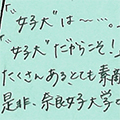 "女子大"は〜…。
"女子大"だからこそ!
たくさんあるとても素敵
是非、奈良女子大学